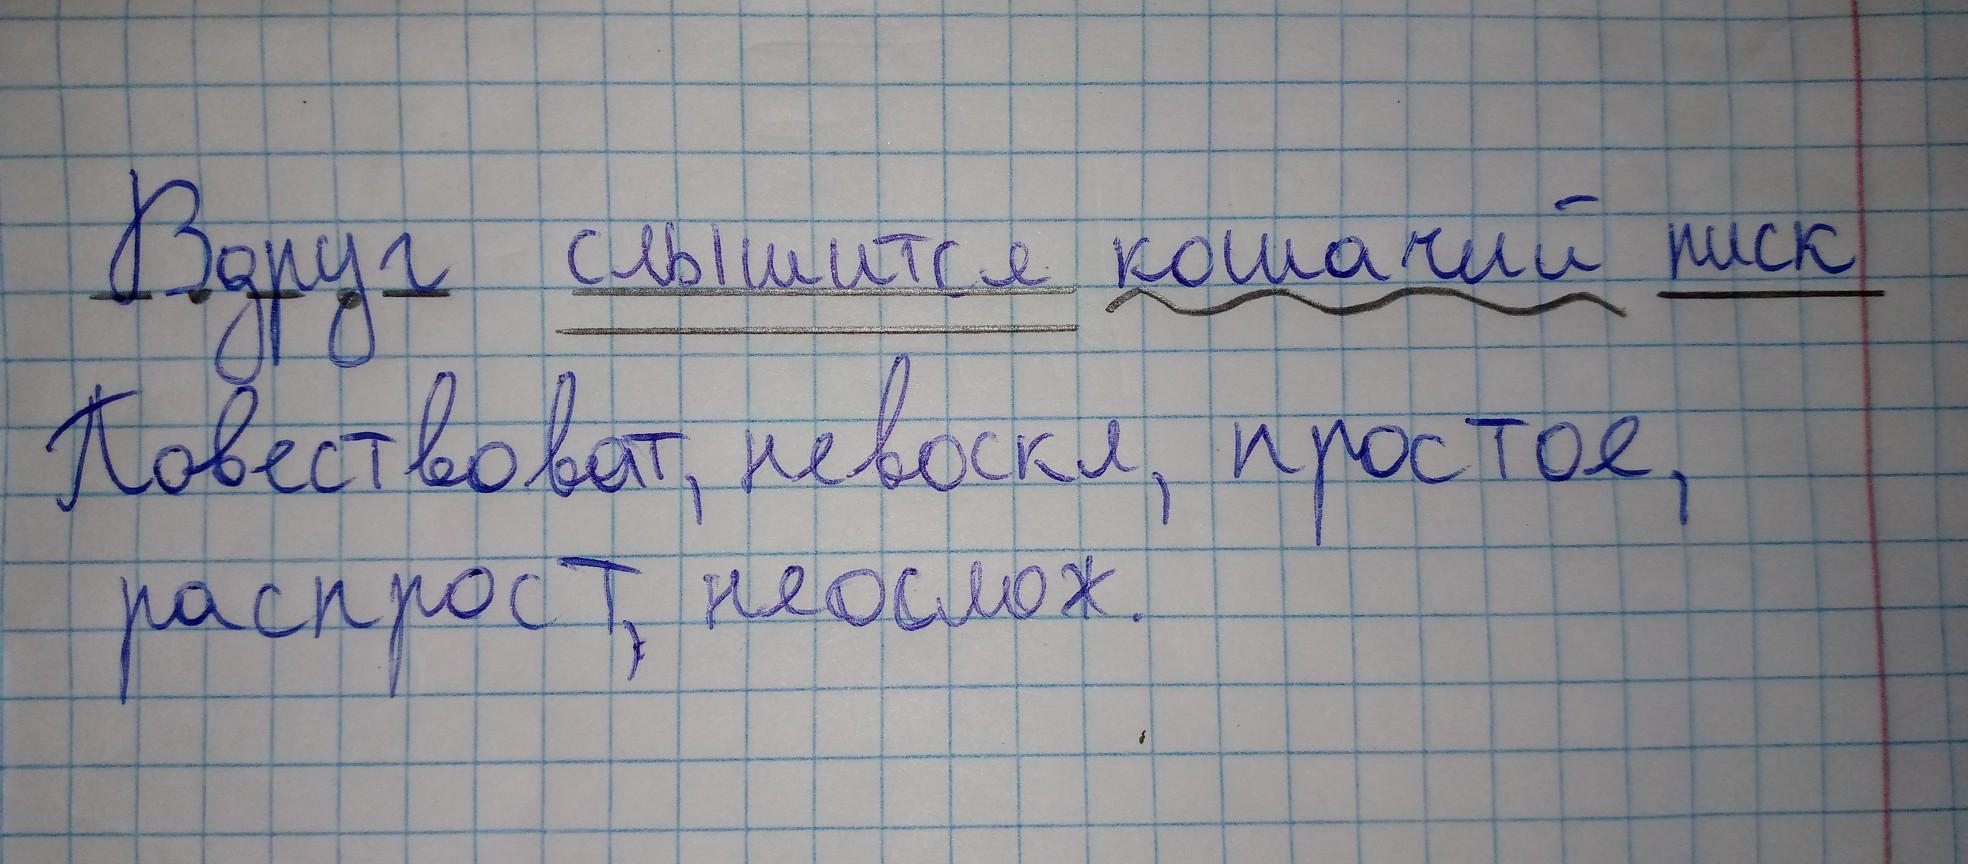 Вдруг слышится кошачий писк
Повествоват, невоскл, простое,
распрост, неослож.